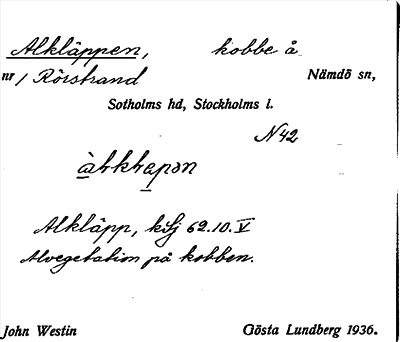 Alkläppen, kobbe å
nr / Rörstrand Nämdö sn,
Sotholms hd, Stockholms l.
N 42
Alkläpp, kSj 62.10.V
Alvegetation på kobben.
John Westin Gösta Lundberg 1936.